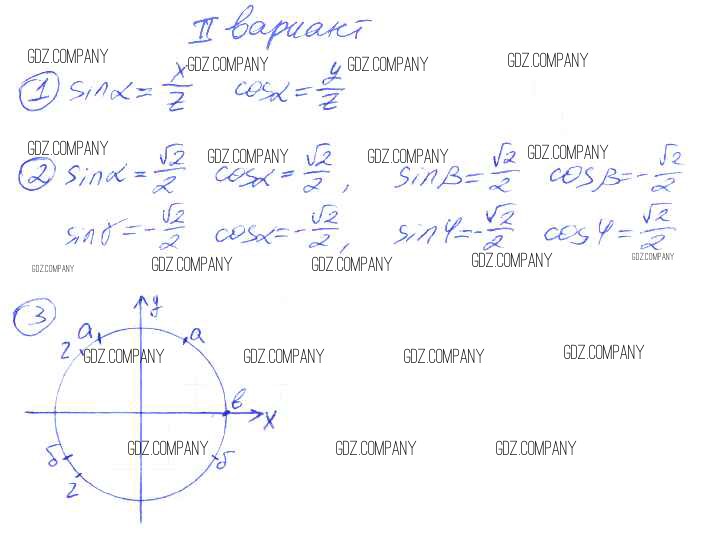 II вариант
GDZ.COMPANY GDZ.COMPANY GDZ.COMPANY GDZ.COMPANY
1 sinα = x/z cosα = y/z
GDZ.COMPANY GDZ.COMPANY GDZ.COMPANY GDZ.COMPANY
2 sinα = √2/2 cosα = √2/2, sinβ = √2/2 cosβ = -√2/2
sinγ = -√2/2 cosα = -√2/2, sinφ = -√2/2 cosφ = √2/2
GDZ.COMPANY GDZ.COMPANY GDZ.COMPANY GDZ.COMPANY GDZ.COMPANY
3 y
а а
г GDZ.COMPANY GDZ.COMPANY GDZ.COMPANY GDZ.COMPANY
в
x
б GDZ.COMPANY б GDZ.COMPANY GDZ.COMPANY
г